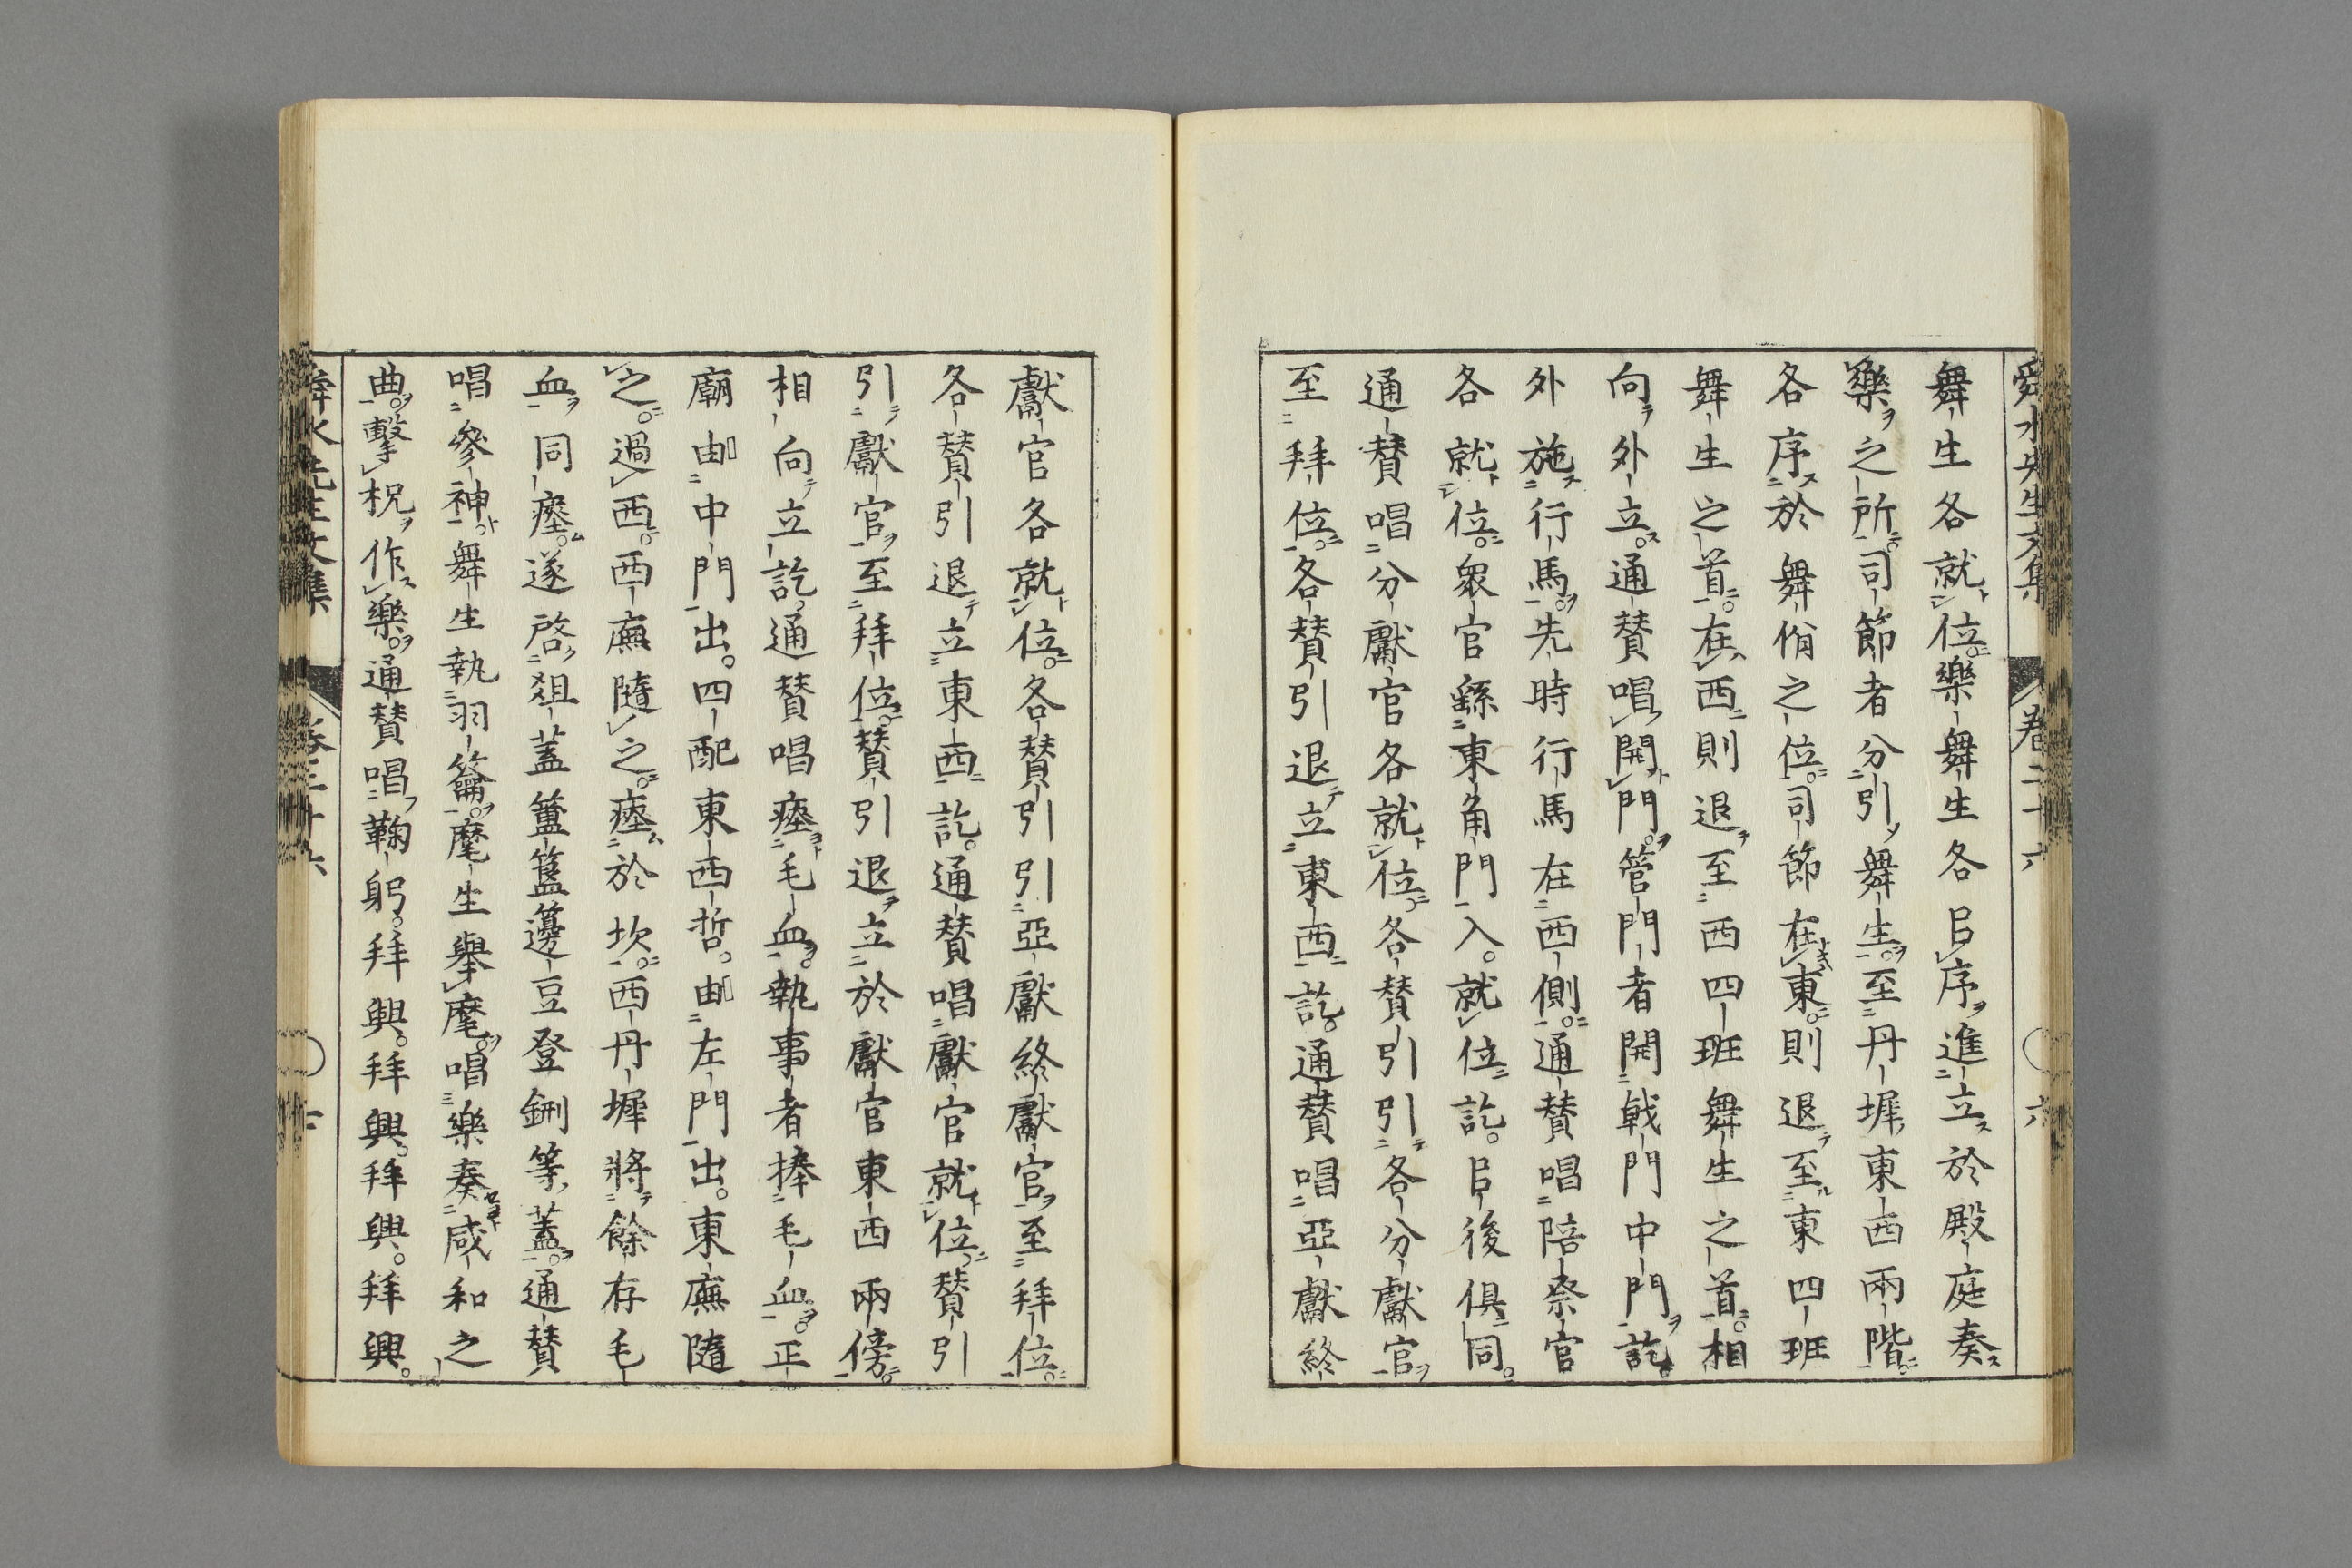 舜水先生文集　卷二十六　六
舞生各就位樂舞生各㠯序進立於殿庭奏
樂之所司節者分引舞生至丹墀東西兩階
各序於舞佾之位司節在東則退至東四班
舞生之首在西則退至西四班舞生之首相
向外立通贊唱開門管門者開戟門中門訖
外施行馬先時行馬在西側通贊唱陪祭官
各就位衆官繇東角門入就位訖㠯後俱同
通贊唱分獻官各就位各贊引引各分獻官
至拜位各贊引退立東西訖通贊唱亞獻終
獻官各就位各贊引引亞獻終獻官至拜位
各贊引退立東西訖通贊唱獻官就位贊引
引獻官至拜位贊引退立於獻官東西兩傍
相向立訖通贊唱瘞毛血執事者捧毛血正
廟由中門出四配東西哲由左門出東廡隨
之過西西廡隨之瘞於坎西丹墀將餘存毛
血同瘞遂啓俎蓋簠簋籩豆登鉶等蓋通贊
唱參神舞生執羽籥麾生擧麾唱樂奏咸和之
曲擊柷作樂通贊唱鞠躬拜興拜興拜興拜興
舜水先生文集　卷二十六